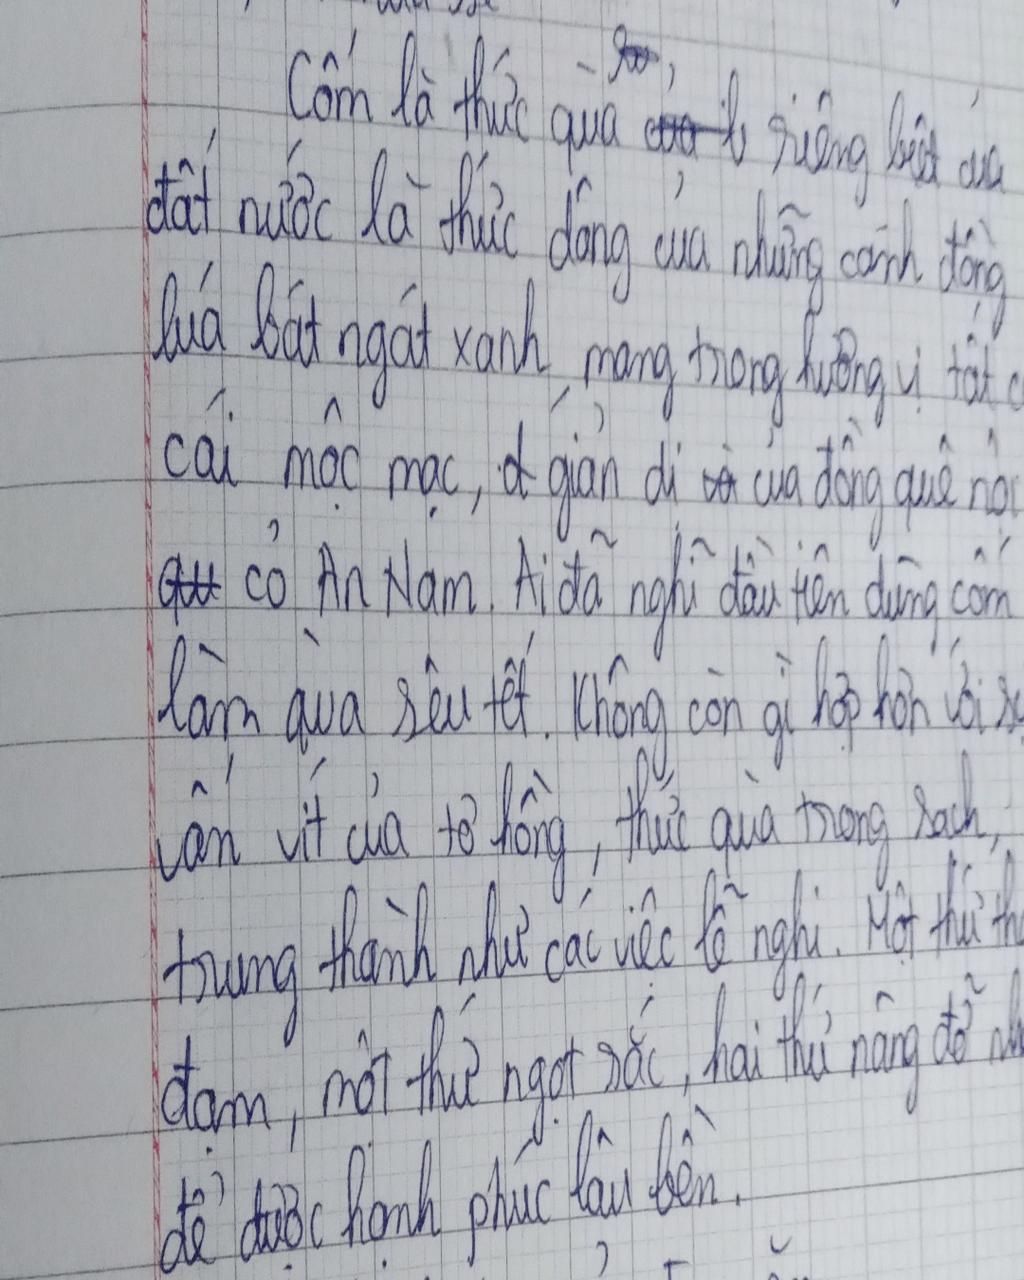 Cốm là thức quà riêng biệt của
đất nước là thức dâng của những cánh đồng
luá bát ngát xanh, mang trong hương vị tất
cái mộc mạc, giản dị của đồng quê nội
cỏ An Nam. Ai đã nghĩ đầu tiên dùng cốm
làm quà sêu tết. Không còn gì hợp hơn với
vấn vít của tơ hồng, thức quà trong sạch,
trung thành như các việc lễ nghi. Một thứ
đạm, một thứ ngọt sắc, hai thứ nâng đỡ
để được hạnh phúc lâu bền.